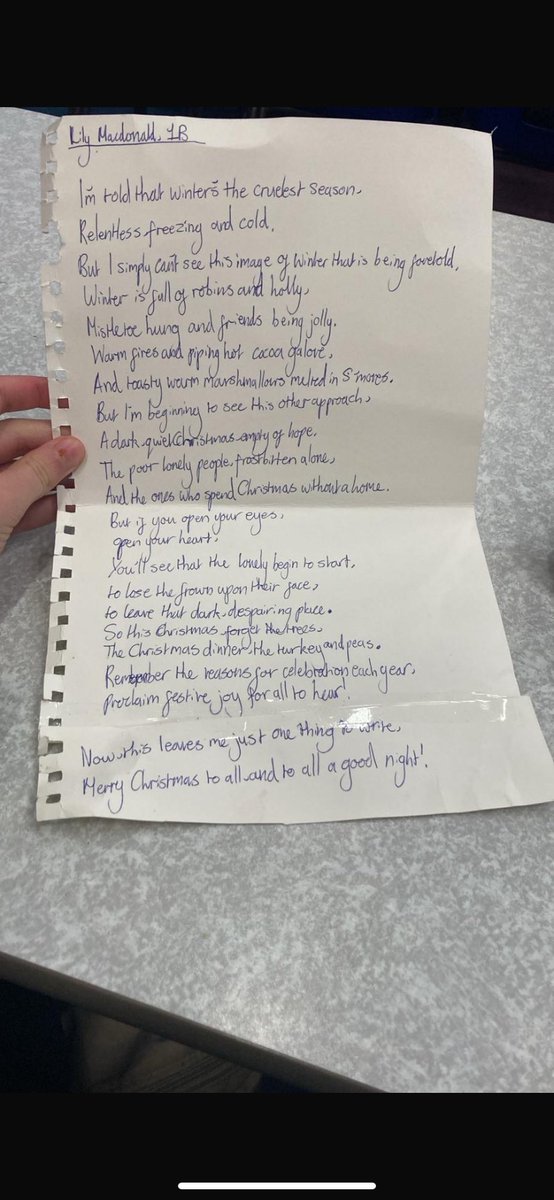 Lily Macdonald, 1B
I'm told that winter's the cruelest season,
Relentless, freezing and cold,
But I simply can't see this image of Winter that is being foretold,
Winter is full of robins and holly,
Mistletoe hung and friends being jolly.
Warm fires and piping hot cocoa galore,
And toasty warm marshmallows melted in S'mores.
But I'm beginning to see this other approach,
A dark, quiet Christmas empty of hope.
The poor lonely people, frostbitten alone,
And the ones who spend Christmas without a home.
But if you open your eyes,
open your heart,
You'll see that the lonely begin to start,
to lose the frown upon their face,
to leave that dark, despairing place.
So this Christmas, forget the trees,
The Christmas dinner, the turkey and peas.
Remember the reasons for celebration each year,
Proclaim festive joy for all to hear!
Now, this leaves me just one thing to write,
Merry Christmas to all, and to all a good night!